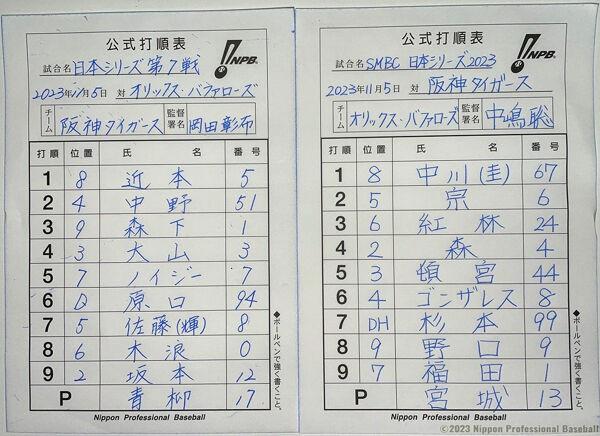 公式打順表
NPB
試合名 日本シリーズ第7戦
2023年11月5日 対 オリックス・バファローズ
チーム 阪神タイガース 監督署名 岡田彰布
打順 位置 氏 名 番号
1 8 近本 5
2 4 中野 51
3 9 森下 1
4 3 大山 3
5 7 ノイジー 7
6 D 原口 94
7 5 佐藤(輝) 8
8 6 木浪 0
9 2 坂本 12
P 青柳 17
◆ボールペンで強く書くこと。
Nippon Professional Baseball
公式打順表
NPB
試合名 SMBC 日本シリーズ2023
2023年11月5日 対 阪神タイガース
チーム オリックス・バファローズ 監督署名 中嶋聡
打順 位置 氏 名 番号
1 8 中川(圭) 67
2 5 宗 6
3 6 紅林 24
4 2 森 4
5 3 頓宮 44
6 4 ゴンザレス 8
7 DH 杉本 99
8 9 野口 9
9 7 福田 1
P 宮城 13
◆ボールペンで強く書くこと。
Nippon Professional Baseball
©2023 Nippon Professional Baseball